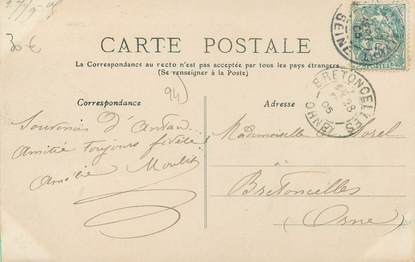 30€
CARTE POSTALE
La Correspondance au recto n'est pas acceptée par tous les pays étrangers
(Se renseigner à la Poste)
Correspondance
94
Adresse
SEINE
BRETONCELLES
(ORNE)
28
05
Souvenirs D'Antan
Amitié toujours fidèle!
Amélie Moulet
Mademoiselle Sorel
à
Bretoncelles
(Orne)